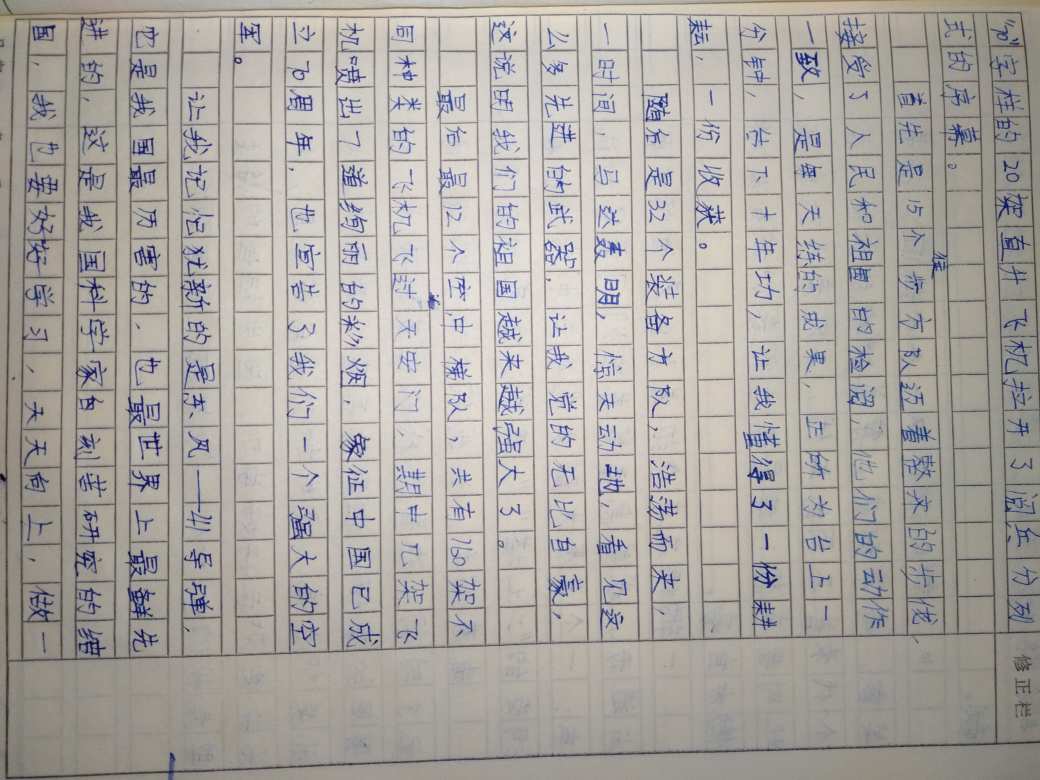 “70”字样的20架直升飞机拉开了阅兵分列
式的序幕。
首先是15个徒步方队迈着整齐的步伐
接受了人民和祖国的检阅，他们的动作
一致，是每天练的成果，正所为台上一
分钟，台下十年功，让我懂得了一份耕
耘，一份收获。
随后是32个装备方队，浩荡而来，
一时间，马达轰明，惊天动地，看见这
么多先进的武器，让我觉的无比自豪，
这说明我们的祖国越来越强大了。
最后最12个空中梯队，共有160架不
同种类的飞机飞过天安门，期中几架飞
机喷出了道绚丽的彩烟，象征中国已成
立70周年，也宣告了我们一个强大的空
军。
让我记忆犹新的是东风——41导弹，
它是我国最历害的、也最世界上最鲜先
进的，这是我国科学家白刻苦研究的结
国，我也要好好学习、天天向上，做一
修正栏